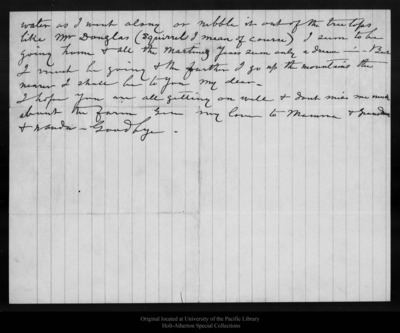 water as I went along or nibble it out of the tree tops
like Mr Douglas (squirrel I mean of course) I seem to be
going home & all the Martinez years seem only a dream - But
I must be going & the farther I go up the mountains the
nearer I shall be to you my dear -
I hope you are all getting on well & dont miss me much
about the farm Give my love to Mamma & Grandma
& Wanda - Goodbye.
Original located at University of the Pacific Library
Holt-Atherton Special Collections